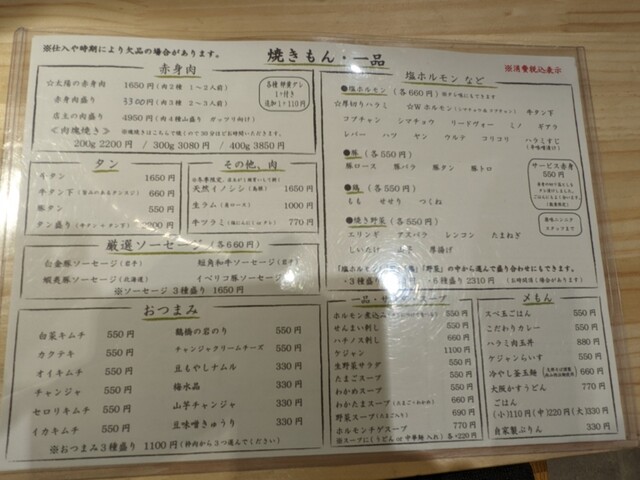 ※仕入や時期により欠品の場合があります。
焼きもん・一品
※消費税込表示
赤身肉
☆太陽の赤身肉 1650円(肉2種 1〜2人前)
赤身肉盛り 3300円(肉3種 2〜3人前)
店主の肉盛り 4950円(肉4種山盛り ガッツリ向け)
≪肉塊焼き≫ ※塊焼きはこちらで焼くので30分ほどお時間いただきます。
200g 2200円 / 300g 3080円 / 400g 3850円
各種 卵黄ダレ
1ヶ付き
追加1ヶ110円
タン
牛タン 1650円
牛タン下 660円
豚タン 550円
タン盛り(牛タン or タン下)
その他、肉
天然イノシシ 1650円
生ラム(肩ロース) 1000円
牛ツラミ 770円
厳選ソーセージ(各660円)
白金豚ソーセージ(岩手)
短角和牛ソーセージ(岩手)
蝦夷豚ソーセージ(北海道)
イベリコ豚ソーセージ
※ソーセージ 3種盛り 1650円
おつまみ
白菜キムチ 550円
カクテキ 550円
オイキムチ 550円
チャンジャ 550円
セロリキムチ 550円
イカキムチ 550円
鶴橋の岩のり 550円
チャンジャクリームチーズ 550円
豆もやしナムル 330円
梅水晶 330円
山芋チャンジャ 330円
豆味噌きゅうり 330円
※おつまみ3種盛り 1100円(枠内から3つ選んでください)
塩ホルモン など
●塩ホルモン(各660円)※タレ味にもできます
☆厚切りハラミ ☆Wホルモン(シマチョウ&コプチャン) 牛タン下
コプチャン シマチョウ リードヴォー ミノ ギアラ
レバー ハツ ヤン ウルテ コリコリ ハラミすじ
(辛味噌漬け)
●豚(各550円)
豚ロース 豚バラ 豚タン 豚トロ
●鶏(各550円)
もも せせり つくね
●焼き野菜(各550円)
エリンギ アスパラ レンコン たまねぎ
しいたけ 厚揚げ
サービス赤身
550円
美味シンシン
スタンプまで
「塩ホルモン」「鶏」「野菜」の中から選んで盛り合わせにもできます。
・3種盛り ・5種盛り 2310円
一品・サラダ・スープ
ホルモン煮込み 550円
せんまい刺し 550円
ハチノス刺し 550円
ケジャン 1100円
生野菜サラダ 550円
たまごスープ 550円
わかめスープ 550円
わかたまスープ(たまご+わかめ) 660円
野菜スープ(たまご入り) 690円
ホルモンチゲスープ 770円
※スープにうどん or 中華麺 入れ) 各+220円
〆もん
スペ玉ごはん 550円
こだわりカレー 550円
ハラミ肉玉丼 880円
ケジャンらいす 550円
冷やし釜玉麺 660円
大阪かすうどん 770円
ごはん
(小)110円(中)220円(大)330円
自家製ぷりん 330円